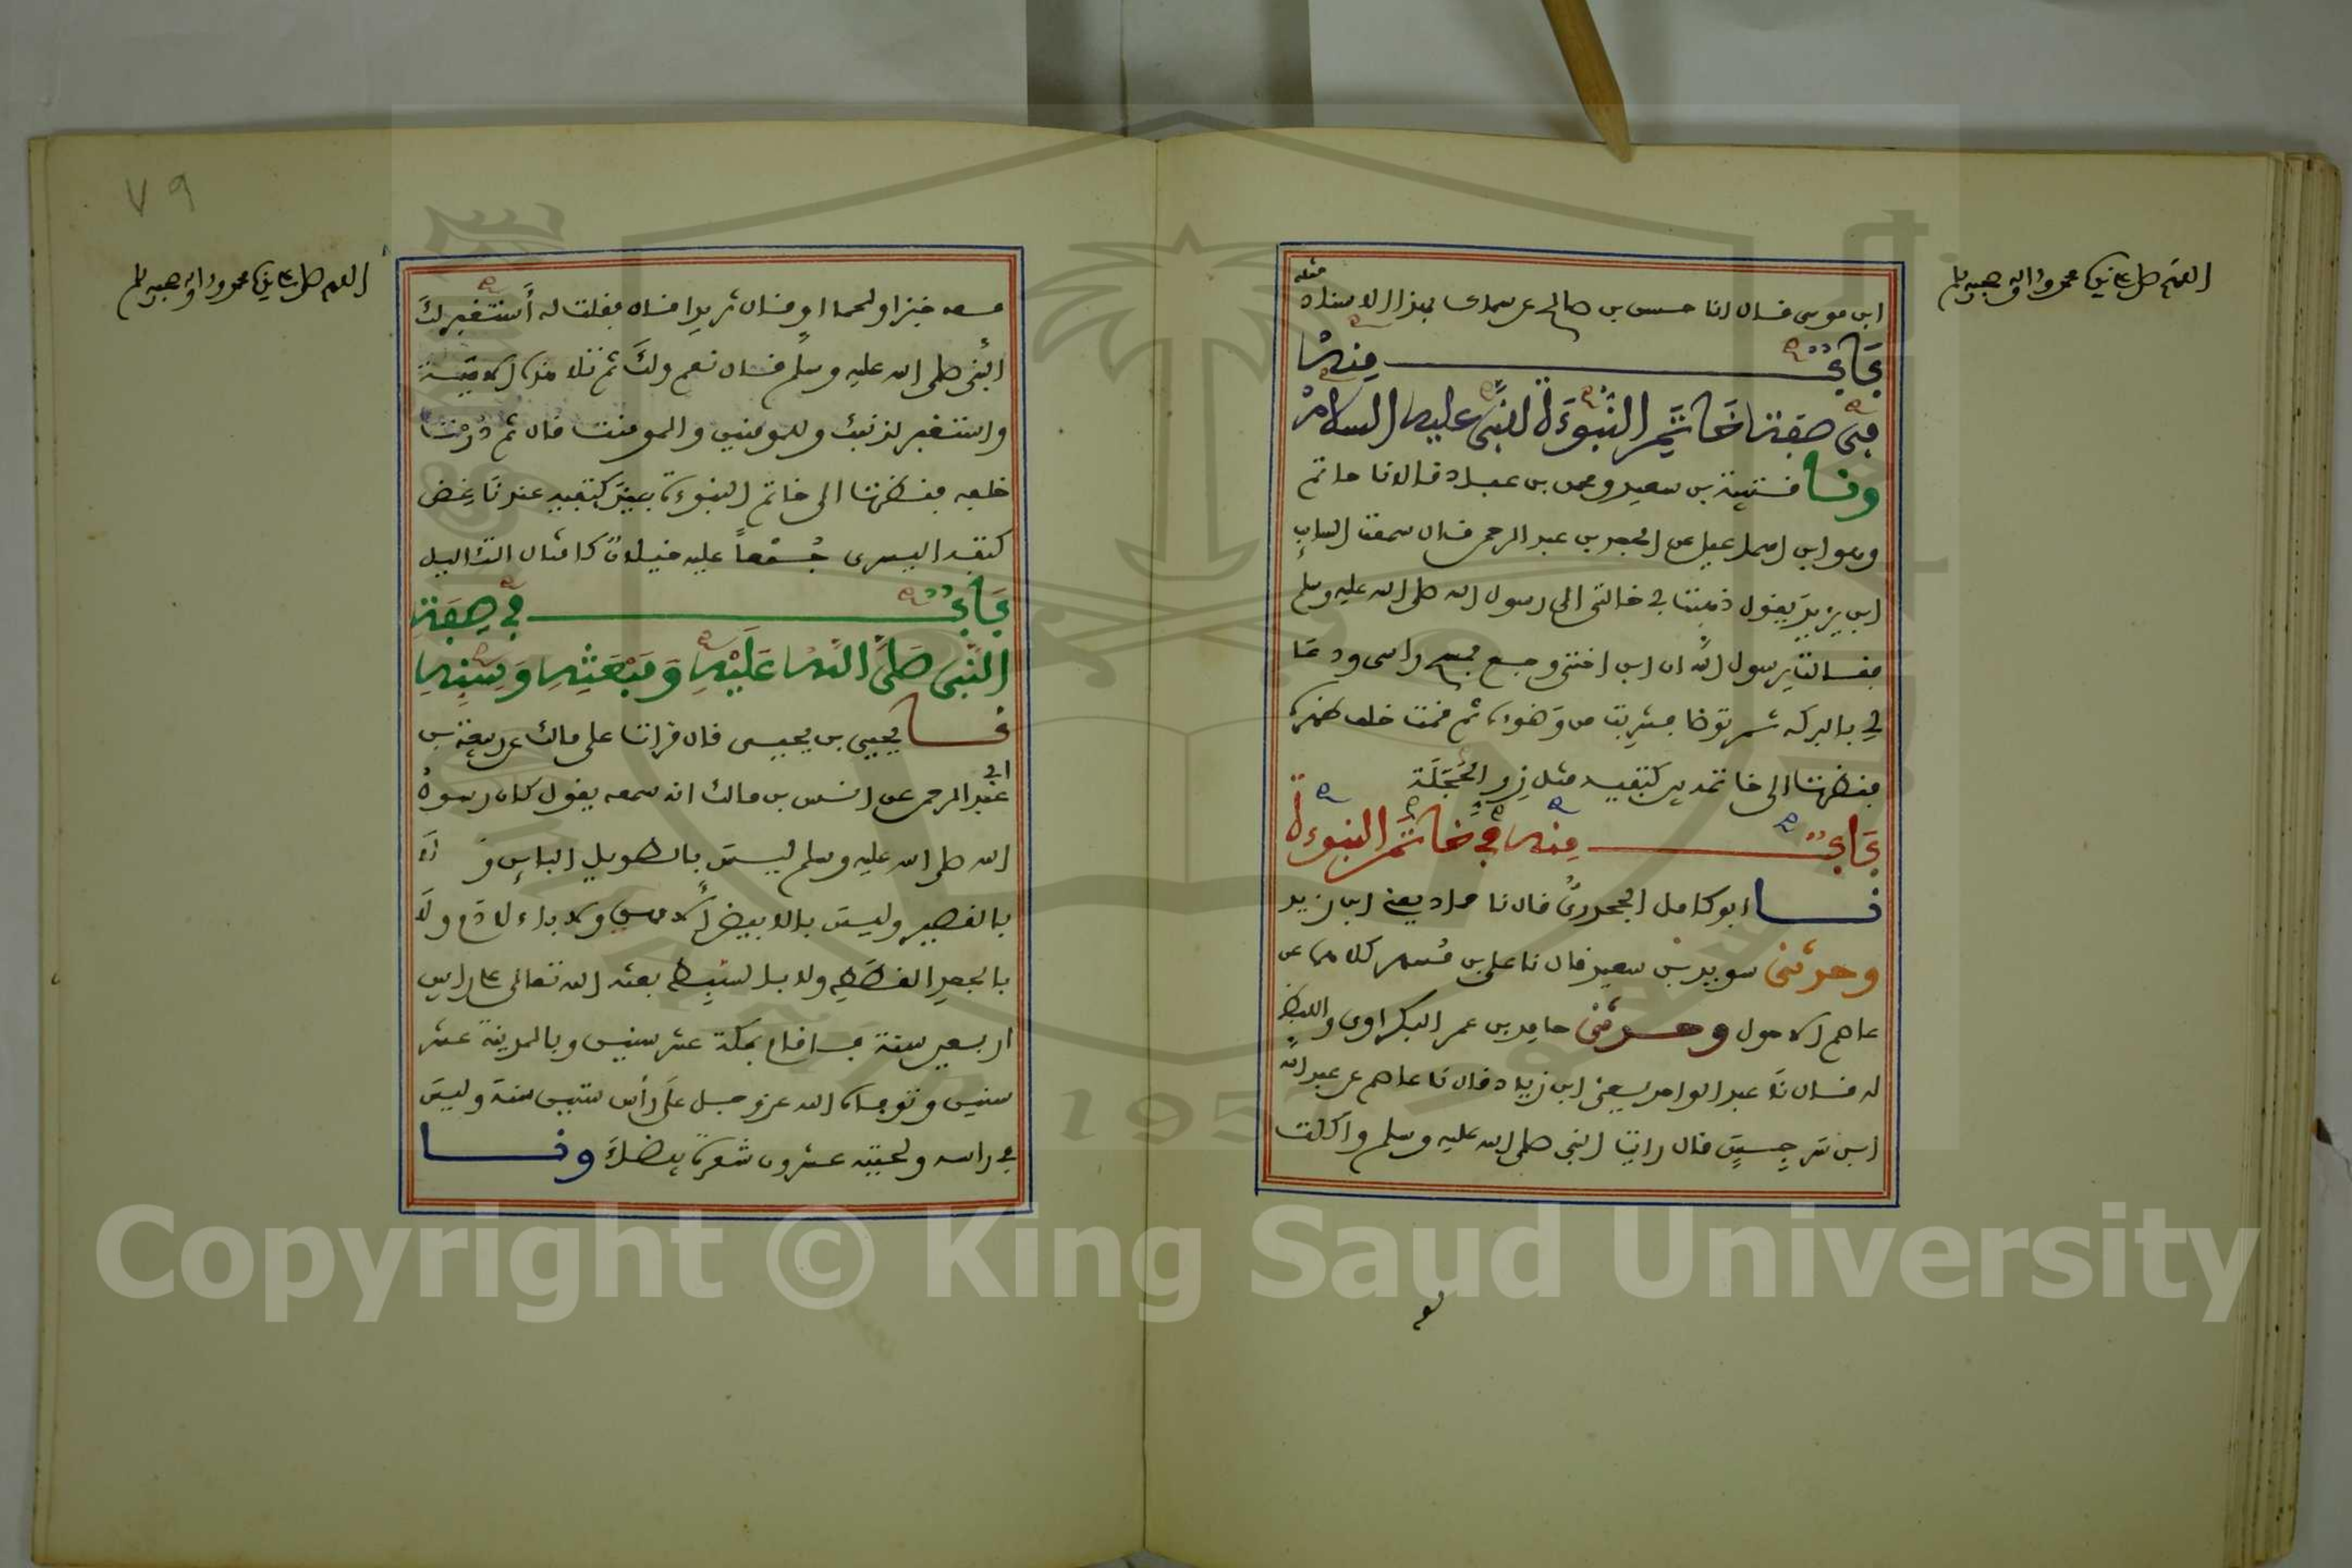 اللهم صل على نبينا محمد وءاله وصحبه وسلم
ابن موسى قال انا حسن بن صالح عن سماك بهذا الاسناد مثله
باب منه
في صفة خاتم النبوءة للنبي عليه السلام
ونا قتيبة بن سعيد ومحمد بن عباد قالا نا حاتم
وهو ابن اسماعيل عن الجعد بن عبد الرحمن قال سمعت السايب
ابن يزيد يقول ذهبت بي خالتي الى رسول الله صلى الله عليه وسلم
فقالت يرسول الله ان ابن اختي وجع فمسح راسي ودعا
لي بالبركة ثم توضا فشربت من وضوءه ثم قمت خلف ظهره
فنظرت الى خاتمه بين كتفيه مثل زر الحجلة
باب منه في خاتم النبوءة
نا ابو كامل الجحدري قال نا حماد يعني ابن زيد
وحدثني سويد بن سعيد قال نا علي بن مسهر كلاهما عن
عاصم الاحول وحدثني حامد بن عمر البكراوي واللفظ
له قال نا عبد الواحد يعني ابن زياد قال نا عاصم عن عبد الله
ابن سرجس قال رايت النبي صلى الله عليه وسلم واكلت
٧٩
اللهم صل على نبينا محمد وءاله وصحبه وسلم
معه خبزا ولحما او قال ثريدا قال فقلت له أستغفر لك
النبي صلى الله عليه وسلم قال نعم ولك ثم تلا هذه الاية
واستغفر لذنبك وللمومنين والمومنت قال ثم درت
خلفه فنظرت الى خاتم النبوءة بين كتفيه عند ناغض
كتفه اليسرى جمعا عليه خيلان كامثال الثاليل
باب في صفة
النبي صلى الله عليه ومبعثه وسنه
نا يحيى بن يحيى قال قرات على مالك عن ربيعة بن
ابي عبد الرحمن عن انس بن مالك انه سمعه يقول كان رسول
الله صلى الله عليه وسلم ليس بالطويل الباين ولا
بالقصير وليس بالابيض الامهق ولا بالادم ولا
بالجعد القطط ولا بالسبط بعثه الله تعالى على راس
اربعين سنة فاقام بمكة عشر سنين وبالمدينة عشر
سنين وتوفاه الله عز وجل على رأس ستين سنة وليس
في راسه ولحيته عشرون شعرة بيضاء ونا